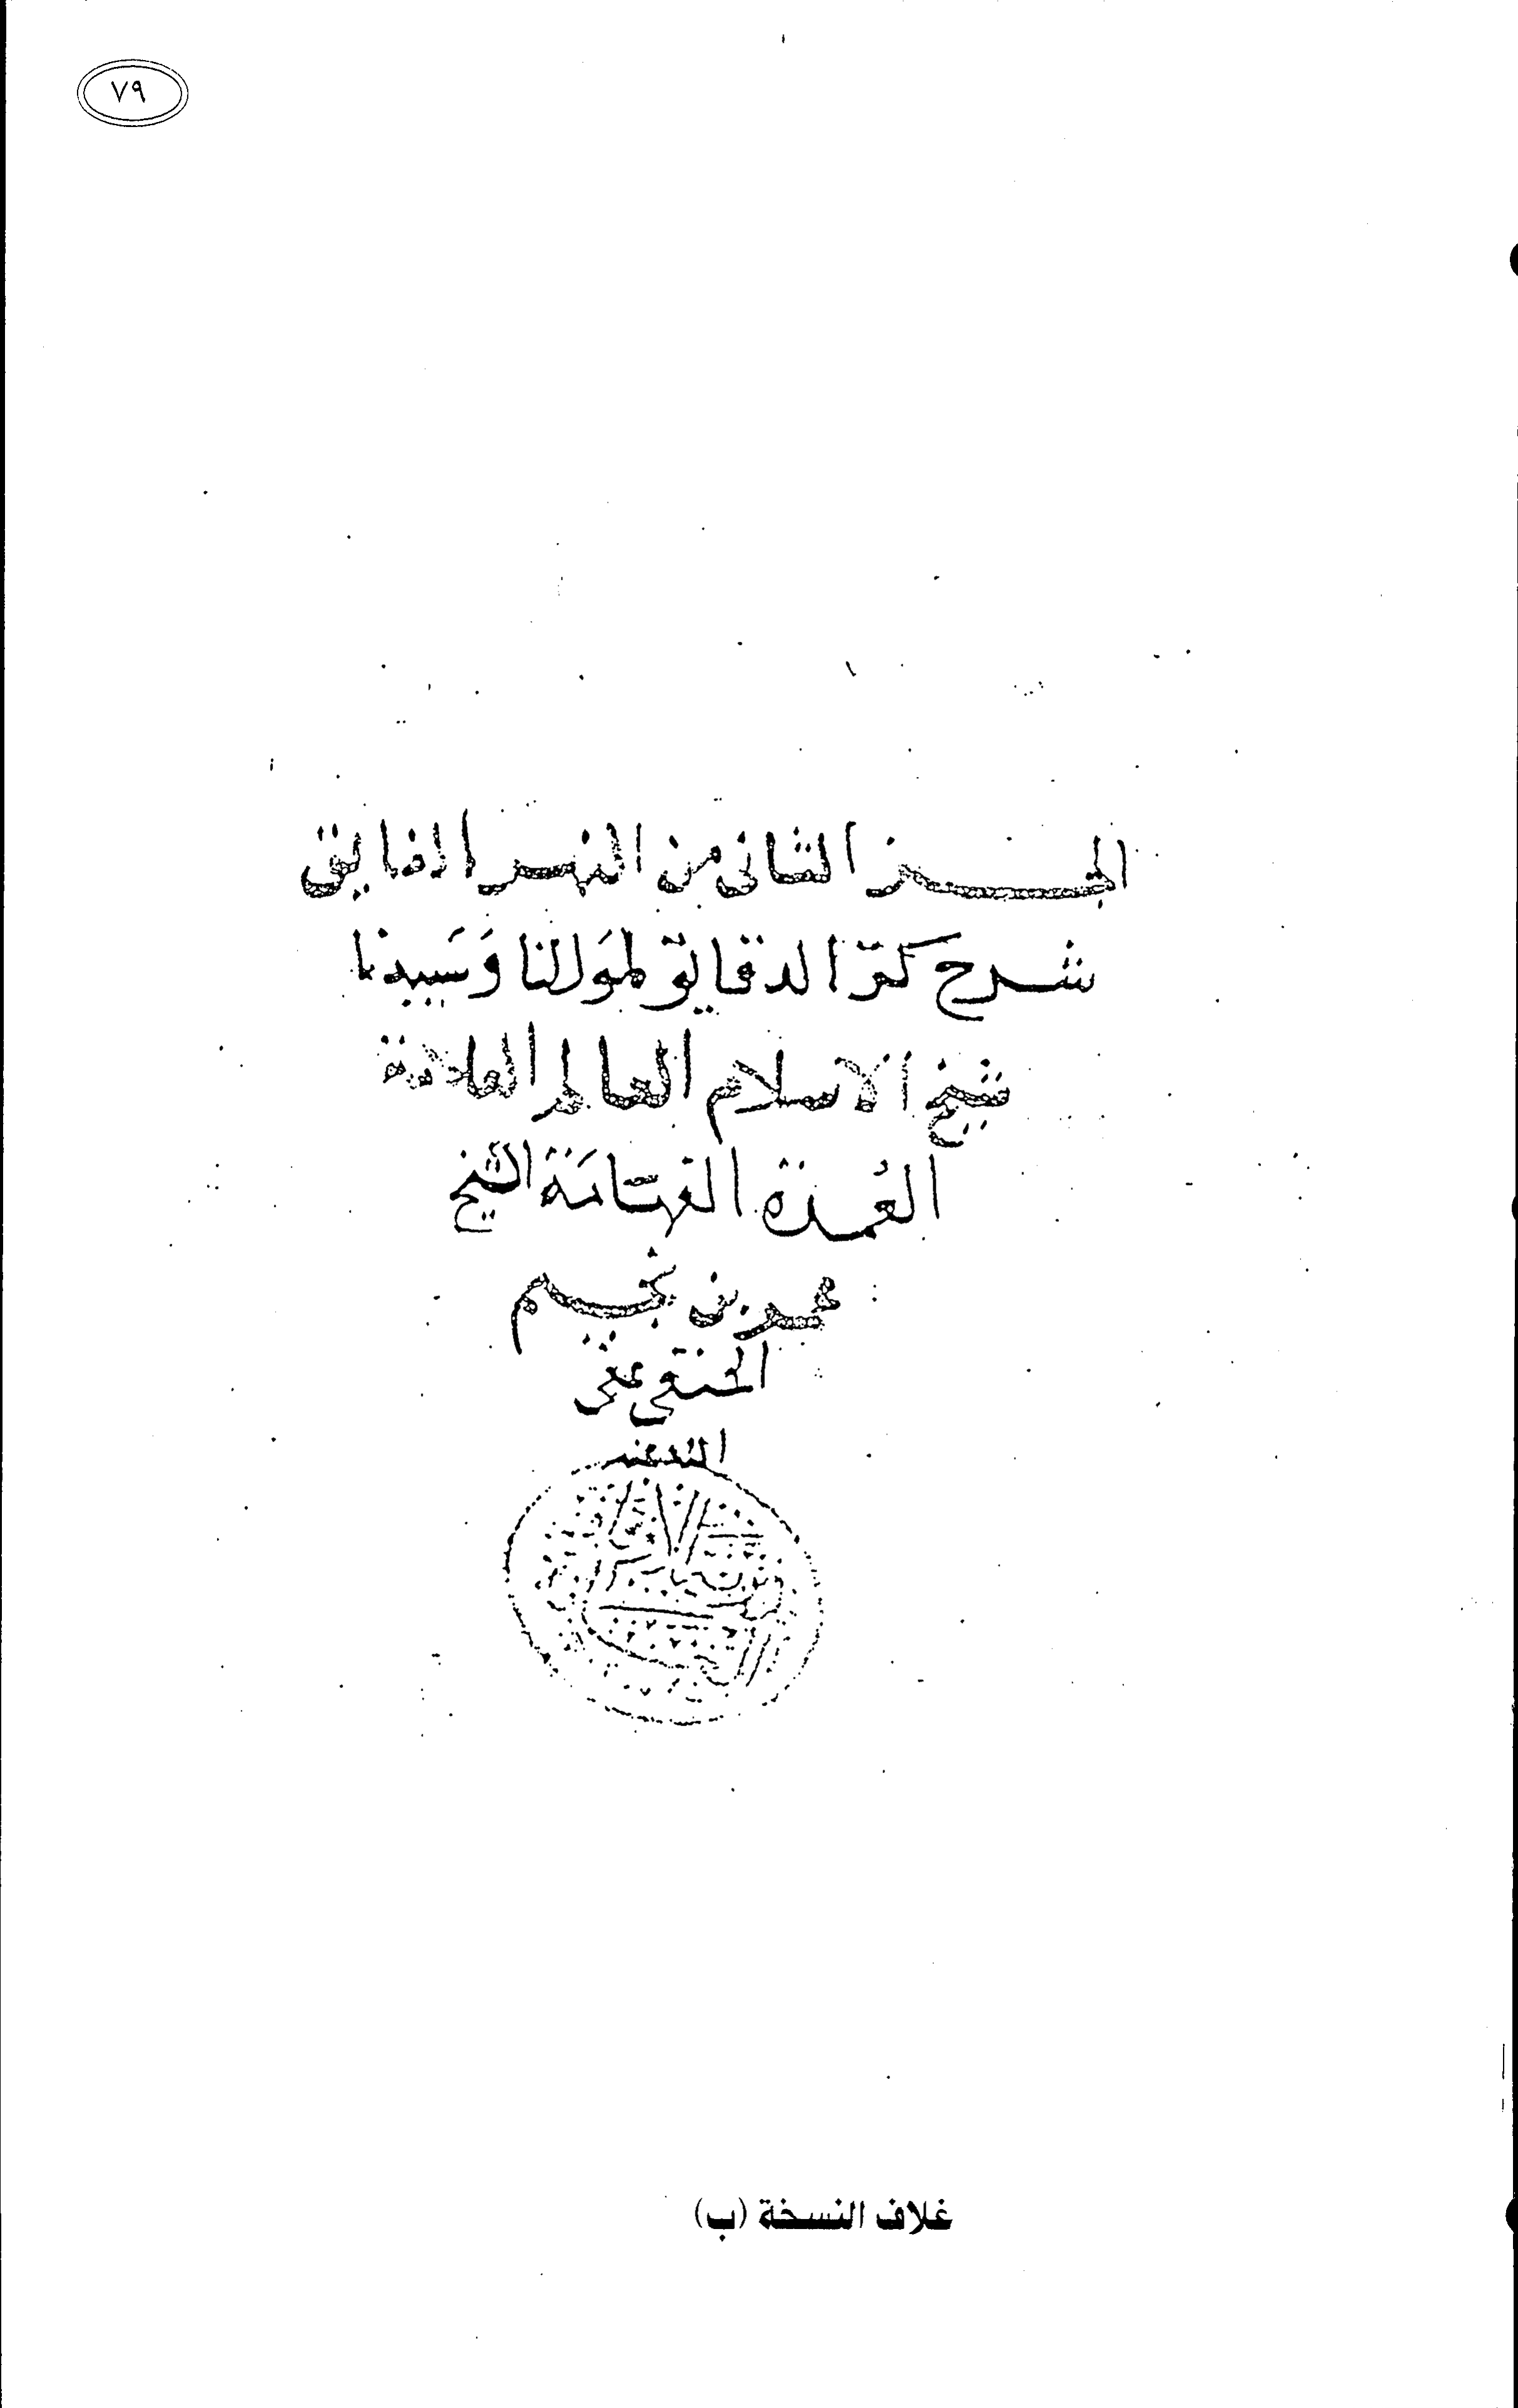 ٧٩
الجز الثانى من النهر الفايق
شرح كنز الدقايق لمَولانا وَسَيدنا
شيخ الاسلام العالم العلامة
العُمدة الفهّامَة الشيخ
محمد بن نجيم
الحنفى عفى
الله عنه
غلاف النسخة (ب)